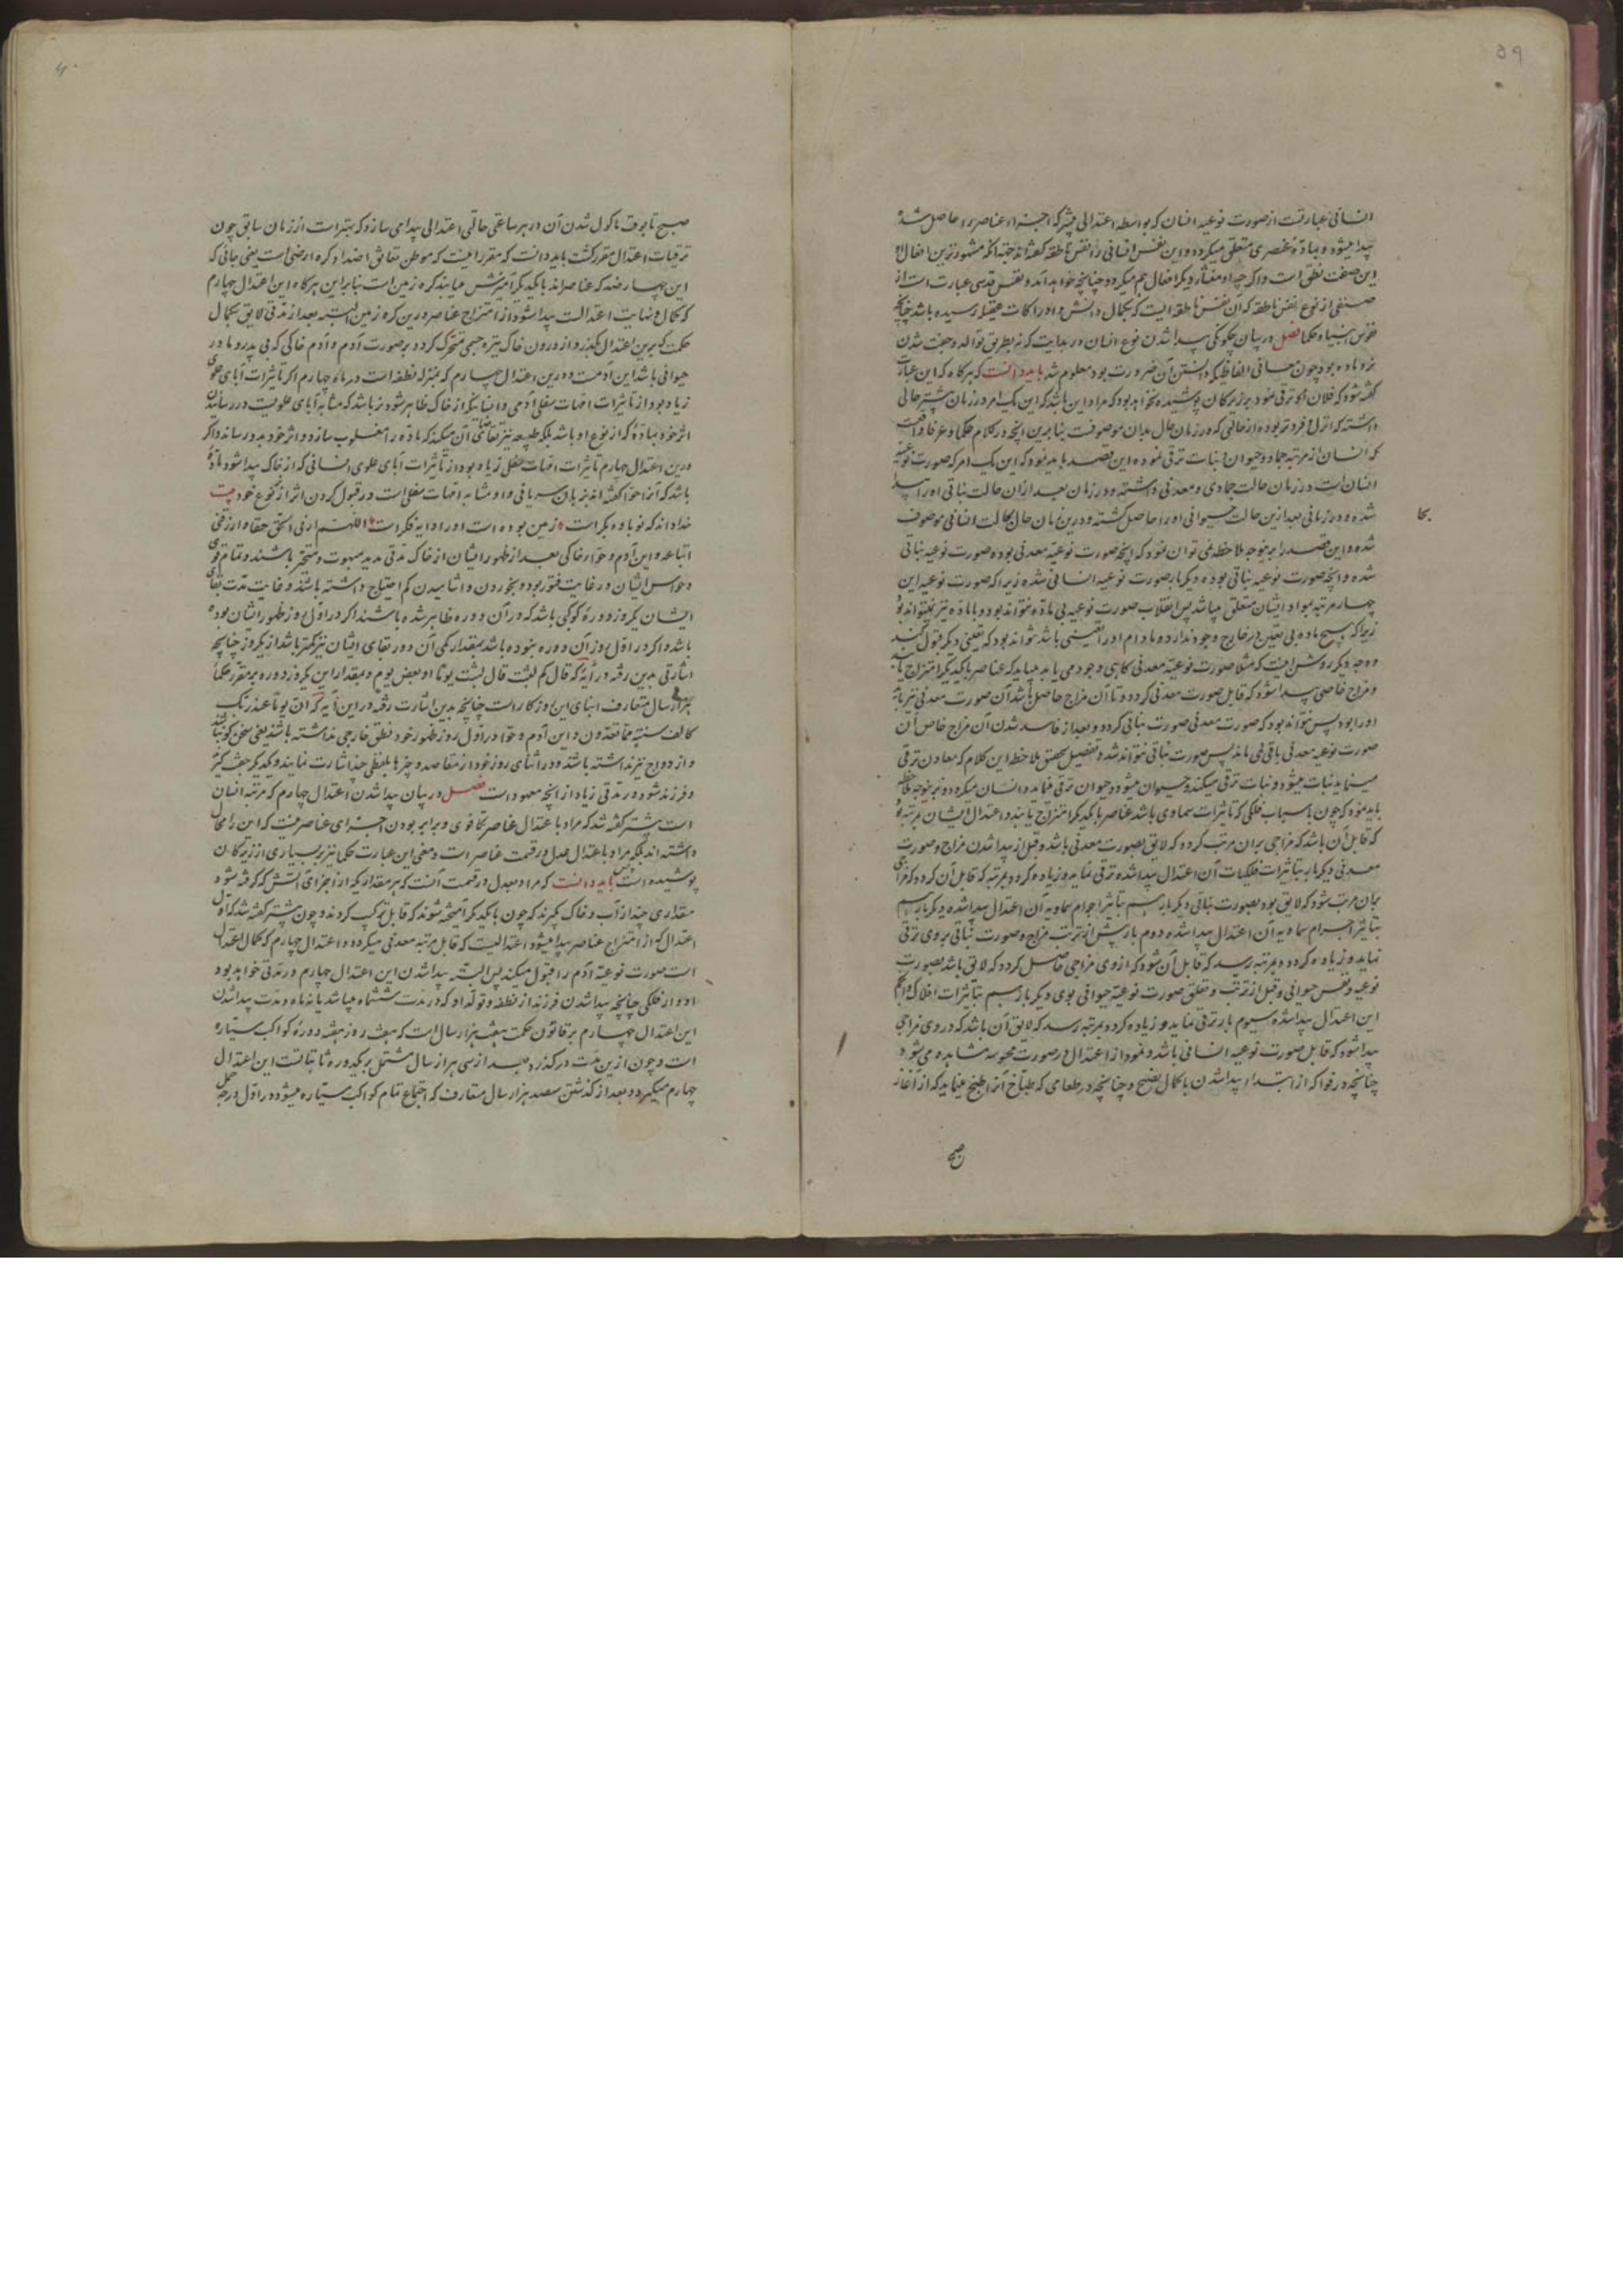 ۵۹
انسانی عبارتست از صورت نوعیه انسان که بواسطه اعتدالی پیشتر که اجزاء عناصر را حاصل شده
پیدا میشود و بمادّه عنصری متعلق میکردد و این نفس انسانی را نفس ناطقه کفته‌اند جهة آنکه مشهورترین افعال او
این صفت نطق است و اکر چه او منشأ دیکر افعال هم میکردد چنانچه خواهد آمد و نفس قدسی عبارت است از
صنفی از نوع نفس ناطقه که آن نفس ناطقه ایست که بکمال دانش و ادراکات عقلیه رسیده باشد چنانچه
نفوس انبیا و حکما فصل در بیان چکونکی پیدا شدن نوع انسان در بدایت که نه بطریق توالد و جفت شدن
نر و ماده بود چون معانی الفاظیکه دانستن آن ضرورت بود معلوم شد باید دانست که هرکاه که این عبارت
کفته شود که فلان امر ترقی نمود بر زیرکان پوشیده نخواهد بود که مراد این باشد که این یک امر در زمان پیشتر حالی
داشته که انزل و فروتر بوده از حالتی که در زمان حال بدان موصوفست بنابرین آنچه در کلام حکما و عرفا واقعست
که انسان از مرتبه جماد و حیوان و نبات ترقی نموده این قصد باید نمود که این یک امر که صورت نوعیه
انسان است در زمان حالت جمادی و معدنی داشته و در زمان بعد از آن حالت نباتی او را پیدا
شده و در زمانی بعد ازین حالت حیوانی او را حاصل کشته و درین زمان حال بحالت انسانی موصوف
شده و این قصد را برینوجه ملاحظه نمی توان نمود که آنچه صورت نوعیه معدنی بوده صورت نوعیه نباتی
شده و آنچه صورت نوعیه نباتی بوده دیکر بار صورت نوعیه انسانی شده زیرا که صورت نوعیه این
چهار مرتبه بمواد ایشان متعلق میباشد پس انقلاب صورت نوعیه بی مادّه نتواند بود و با مادّه نیز نمیتواند بود
زیرا که هیچ ماده بی تعین در خارج وجود ندارد و مادام او را تعینی باشد نتواند بود که تعینی دیکر قبول کند
وجه دیکر روشن اینست که مثلا صورت نوعیه معدنی کاهی وجود می یابد که عناصر با یکدیکر امتزاج یابند
و مزاج خاصی پیدا شود که قابل صورت معدنی کردد و تا آن مزاج حاصل باشد آن صورت معدنی نیز باشد
او را بود پس نتواند بود که صورت معدنی صورت نباتی کردد و بعد از فاسد شدن آن مزاج خاص آن
صورت نوعیه معدنی باقی نمی ماند پس صورت نباتی نتواند شد و تفصیل تحقیق ملاحظه این کلام که معادن ترقی
مینماید نبات میشود و نبات ترقی میکند و حیوان میشود و حیوان ترقی نماید و انسان میکردد برینوجه ملاحظه
باید نمود که چون باسباب فلکی که تاثیرات سماوی باشد عناصر با یکدیکر امتزاج یابند و اعتدال ایشان بمرتبه بود
که قابل آن باشد که مزاجی بران مرتب کردد که لایق بصورت معدنی باشد و قبل از پیدا شدن مزاج و صورت
معدنی دیکر بار بتاثیرات فلکیات آن اعتدال پیدا شده ترقی نماید و زیاده کردد بمرتبه که قابل آن کردد که مزاجی
بران مرتب شود که لایق بود بصورت نباتی دیکر باز هم بتاثیر اجرام سماویه آن اعتدال پیدا شده دیکر بار هم
بتاثیر اجرام سماویه آن اعتدال پیدا شده دوم بار پیش از ترتب مزاج و صورت نباتی بروی ترقی
نماید و زیاده کردد و بمرتبه رسد که قابل آن شود که از وی مزاجی حاصل کردد که لایق باشد بصورت
نوعیه و نفس حیوانی و قبل از ترتب و تعلق صورت نوعیه حیوانی بوی دیکر باز هم بتاثیرات افلاک و انجم
این اعتدال پیدا شده سیوم بار ترقی نماید و زیاده کردد بمرتبه رسد که لایق آن باشد که در وی مزاجی
پیدا شود که قابل صورت نوعیه انسانی باشد و نمود از اعتدال در صورت محسوسه مشاهده می شود
چنانچه در فواکه از ابتدا پیدا شدن تا کمال نضج و چنانچه در طعامی که طباخ آنرا طبخ مینماید که از آغاز
صبح
۶۰
صبح تا بوقت ماکول شدن آن در هر ساعتی حالتی اعتدالی پیدا می سازد که بهتر است از زمان سابق چون
ترقیات اعتدال مقرر کشت باید دانست که مقرر اینست که موطن تعانق اضداد کره ارضی است یعنی جائی که
این چهار ضد که عناصراند با یکدیکر آمیزش مینمایند کره زمین است بنابراین هرکاه این اعتدال چهارم
که کمال و نهایت اعتدالست پیدا شود از امتزاج عناصر درین کره زمین البته بعد از مدتی لایق بکمال
حکمت که برین اعتدال بکذرد از درون خاک بیتر و جسمی متحرک کردد بر صورت آدم و آدم خاکی که بی پدر و مادر
حیوانی باشد این آدمست و درین اعتدال چهارم که بمنزله نطفه است در ماده چهارم اکر تاثیرات آبای علوی
زیاد بود از تاثیرات امّهات سفلی آدمی و انسانی که از خاک ظاهر شود نر باشد که مشابه آبای علویست در رسانیدن
اثر خود بمادّه که از نوع او باشد بلکه طبیعه نیز تقاضای آن میکند که ماده را مغلوب سازد و اثر خود بدو رساند و اکر
درین اعتدال چهارم تاثیرات امّهات سفلی زیاده بود از تاثیرات آبای علوی انسانی که از خاک پیدا شود مادّه
باشد که آنرا حوّا کفته‌اند بزبان سریانی و او مشابه امّهات سفلی است در قبول کردن اثر از نوع خود بیت
خداداند که نوباوه بکر است * زمین بوده است او را دایه فکر است * اللّهم ارنی الحق حقا و ارزقنی
اتباعه و این آدم و حوّاء خاکی بعد از ظهور ایشان از خاک مدتی مدید مبهوت و متحیّر باشند و تمام قوی
و حواس ایشان در غایت فتور بود و بخوردن و آشامیدن کم احتیاج داشته باشند و غایت مدّت بقای
ایشان یکروز دوره کوکبی باشد که در آن دوره ظاهر شده باشند اکر در اوّل روز ظهور ایشان بوده
باشد و اکر در اوّل روز آن دوره نبوده باشد بمقدار کمی آن دور بقای ایشان نیز کمتر باشد از یکروز چنانچه
اشارتی بدین رفته در آیه که قال کم لبثت قال لبثت یوما او بعض یوم و مقدار این یکروز دوره بر مقرر حکما
هزار سال متعارف ابنای این روزکار است چنانچه بدین اشارت رفته در این آیه که انّ یوما عند ربک
کالف سنة مما تعدّون و این آدم و حوّا در اوّل روز ظهور خود نطق خارجی نداشته باشند یعنی سخن کو نباشند
و ازدواج نیز نداشته باشند و در اثنای روز خود از مقاصد و چیزها بلفظی چند اشارت نمایند و یکدیکر جفت کیرند
و فرزند شود در مدتی زیاد از آنچه معهود است فصل در بیان پیدا شدن اعتدال چهارم که مرتبه انسان
است پیشتر کفته شد که مراد با عتدال عناصر تکافوی و برابر بودن اجزای عناصر نیست که این را محال
دانسته‌اند بلکه مراد باعتدال عدل در قسمت عناصر است و معنی این عبارت حکما نیز بر بسیاری از زیرکان
پوشیده است پس باید دانست که مراد بعدل در قسمت آنست که هر مقدار یکه از اجزای آتش که کرفته شود
مقداری چند از آب و خاک بکیرند که چون با یکدیکر آمیخته شوند که قابل ترکیب کردند و چون پیشتر کفته شد که اوّل
اعتدال که از امتزاج عناصر پیدا میشود اعتدالیست که قابل مرتبه معدنی میکردد و اعتدال چهارم که کمال اعتدال
است صورت نوعیه آدم را قبول میکند پس البته پیدا شدن این اعتدال چهارم در مدتی خواهد بود
ادوار فلکی چنانچه پیدا شدن فرزند از نطفه و تولّد او که در مدت ششماه میباشد یا نه ماه و مدّت پیدا شدن
این اعتدال چهارم بر قانون حکمت هفت هزار سال است که هفت روز هفته دوره کواکب سیّاره
است و چون ازین مدّت در کذرد بعد از سی هزار سال مشتمل بر یکدوره ثابتاتست این اعتدال
چهارم میکیرد و بعد از کذشتن سیصد هزار سال متعارف که اجتماع تمام کواکب سیّاره میشود در اوّل درجه حمل